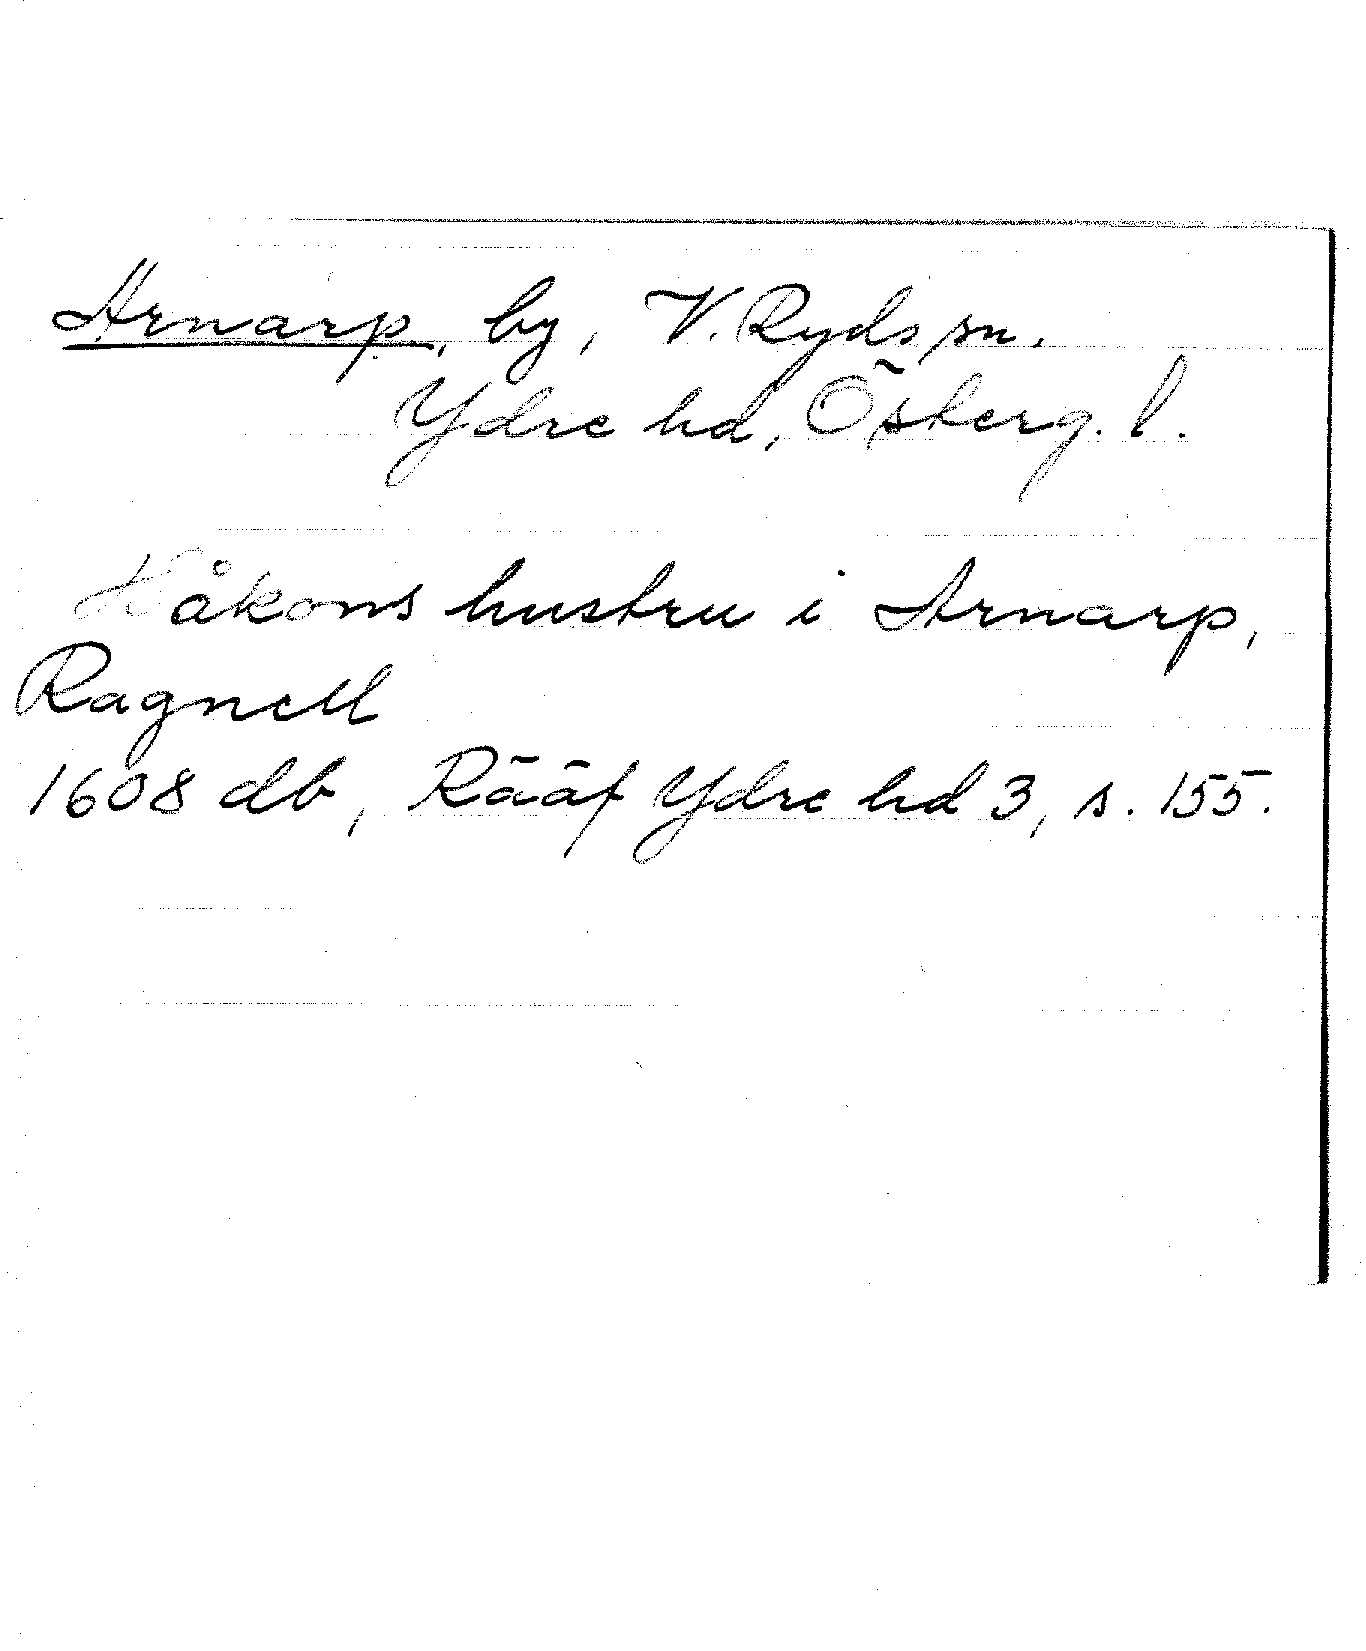 Arnarp, by, V. Ryds sn.
Ydre hd, Österg. l.
Håkons hustru i Arnarp,
Ragnell
1608 db, Rääf Ydre hd 3, s. 155.